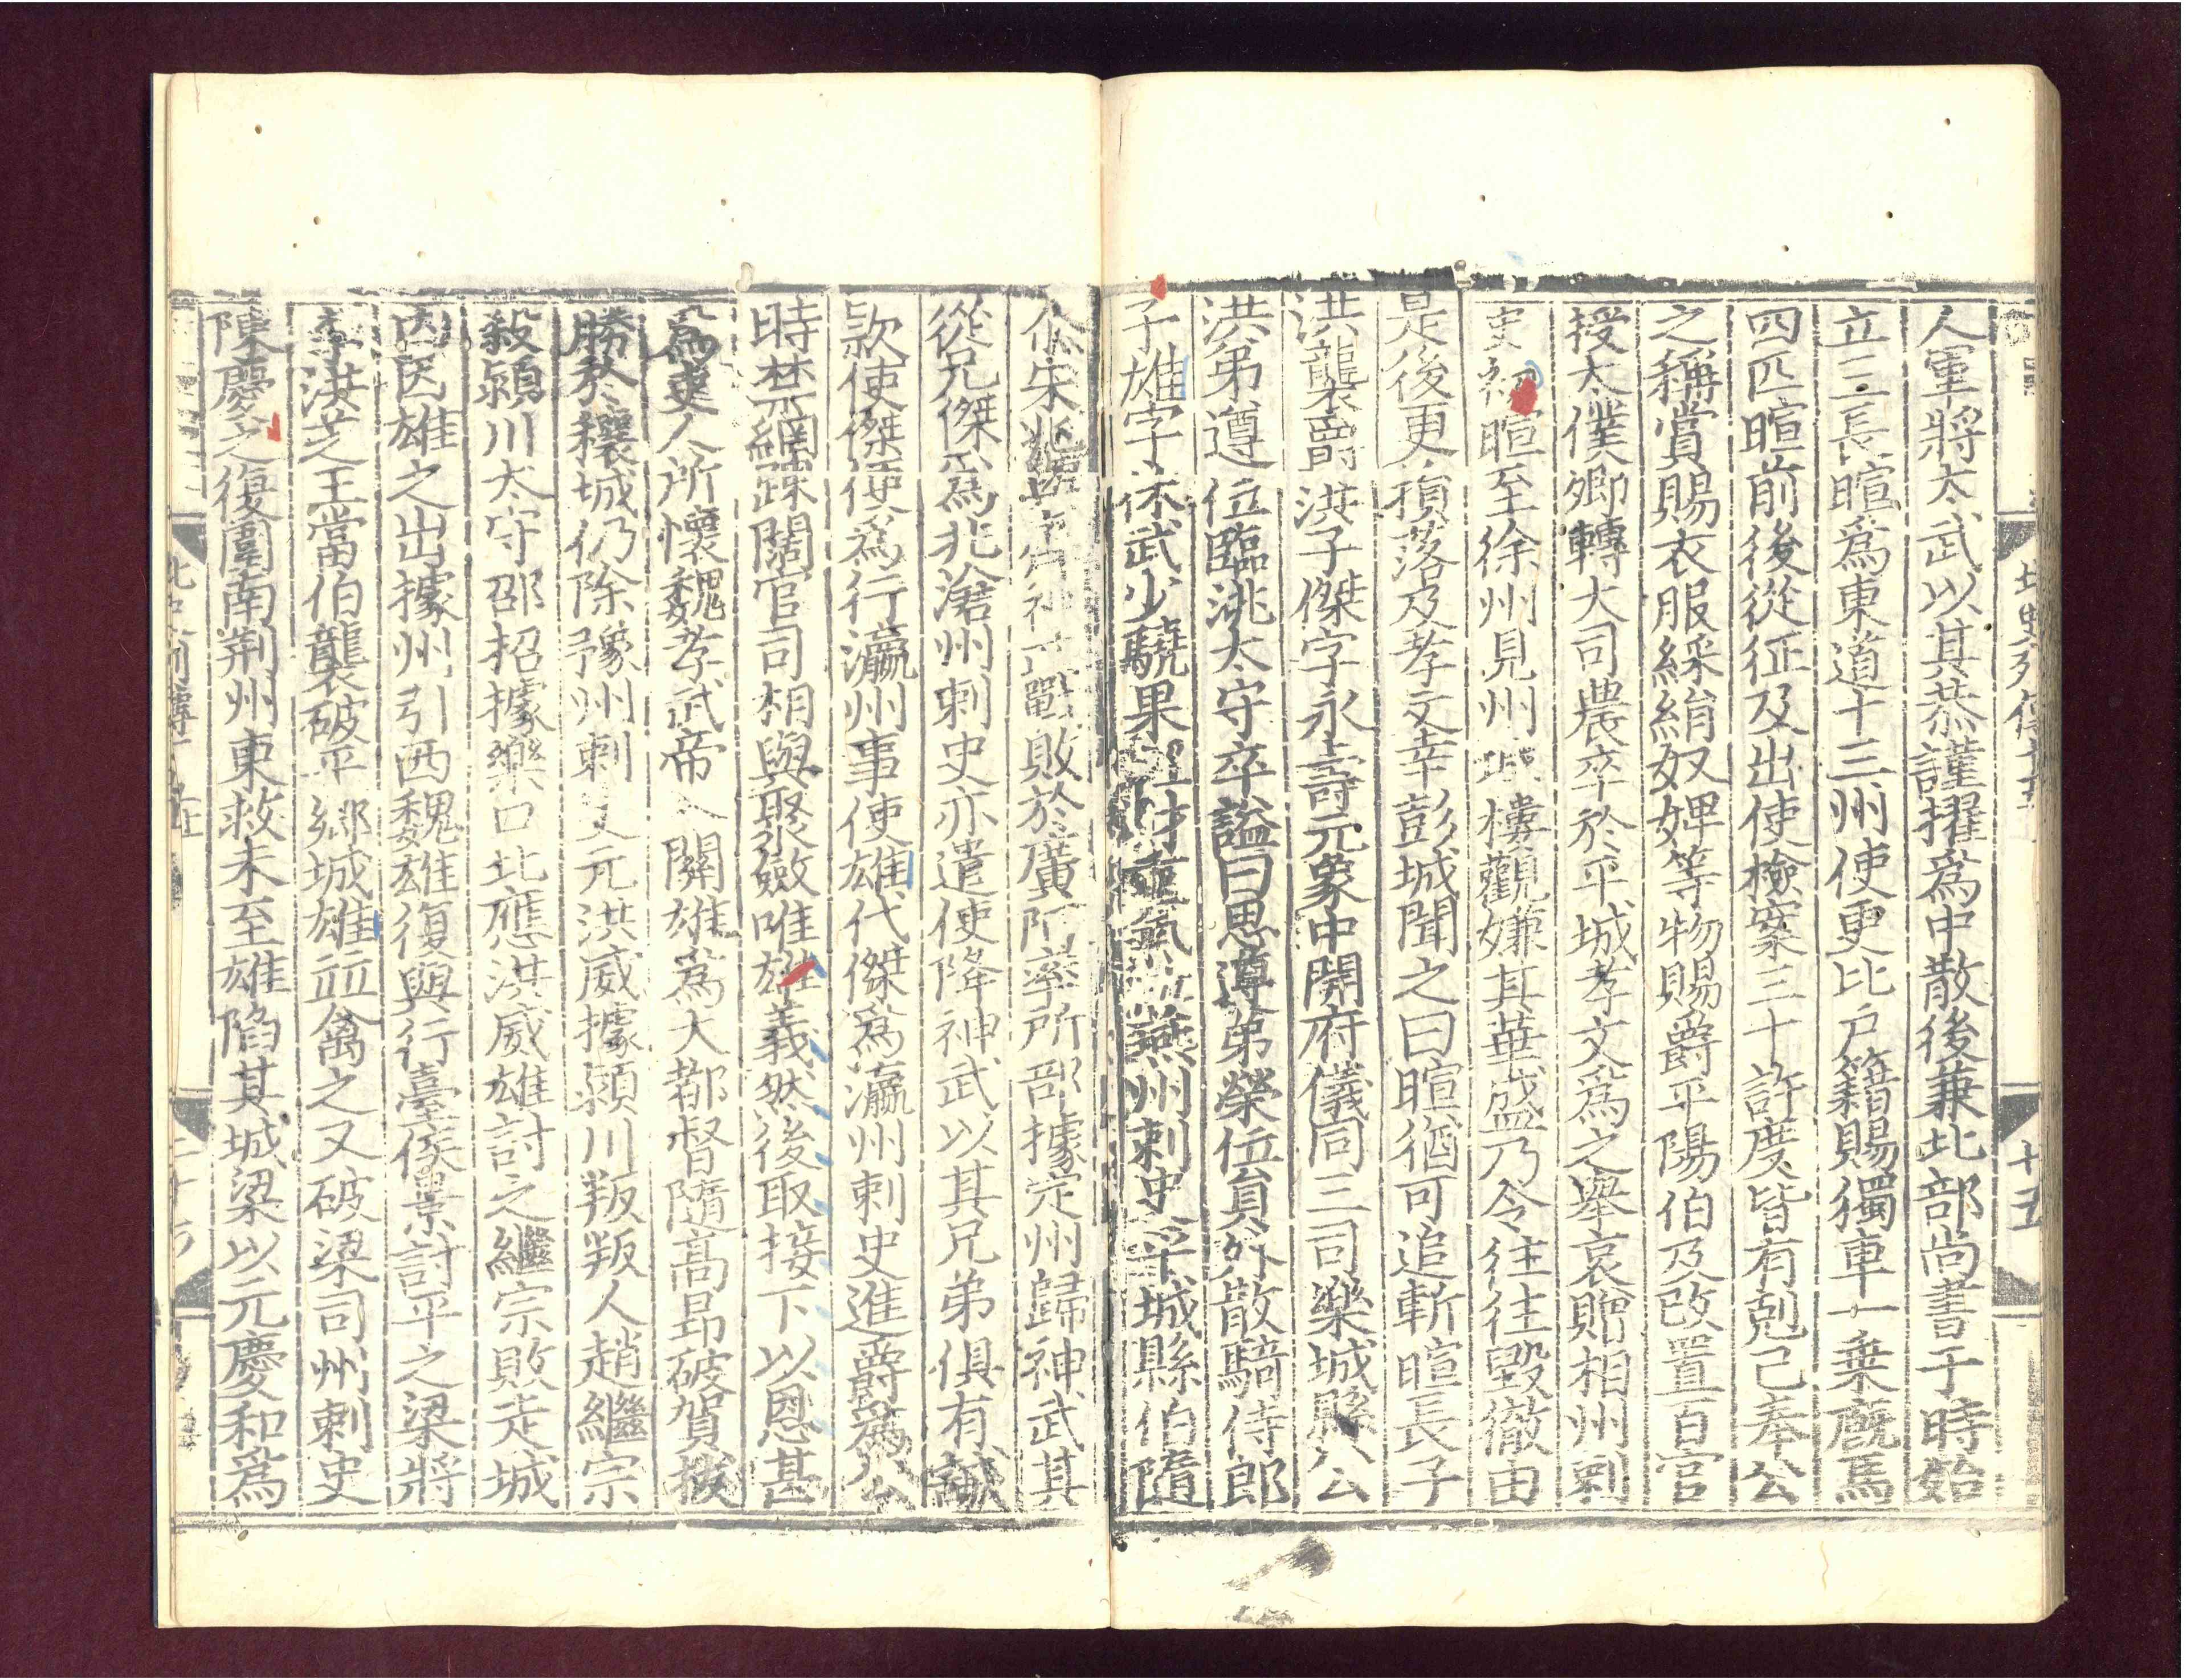 北史列傳十五
十五
人軍將太武以其恭謹擢爲中散後兼北部尚書于時始
立三長暄爲東道十三州使更比戶籍賜獨車一乗廐馬
四匹暄前後從征及出使檢案三十許度皆有剋己奉公
之稱賞賜衣服綵絹奴婢等物賜爵平陽伯及改置百官
授太僕卿轉大司農卒於平城孝文爲之舉哀贈相州刺
史初暄至徐州見州城樓觀嫌其華盛乃令往往毀徹由
是後更損落及孝文幸彭城聞之曰暄猶可追斬暄長子
洪襲爵洪子傑字永壽元象中開府儀同三司樂城縣公
洪弟遵位臨洮太守卒謚曰思遵弟榮位員外散騎侍郎
子雄字休武少驍果燕州刺史平城縣伯隨
尒朱戰敗於廣阿率所部據定州歸神武其
從兄傑爲北滄州刺史亦遣使降神武以其兄弟俱有誠
款使傑便爲行瀛州事使雄代傑爲瀛州刺史進爵爲公
時禁網踈闊官司相與聚斂唯雄義然後取接下以恩甚
爲吏人所懷魏孝武帝入關雄爲大都督隨高昂破賀拔
勝於穰城仍除豫州刺史元洪威據潁川叛叛人趙繼宗
殺潁川太守邵招據樂口北應洪威雄討之繼宗敗走城
內因雄之出據州引西魏雄復與行臺侯景討平之梁將
李洪芝王當伯襲破平鄉城雄並禽之又破梁司州刺史
陳慶之復圍南荆州東救未至雄陷其城梁以元慶和爲